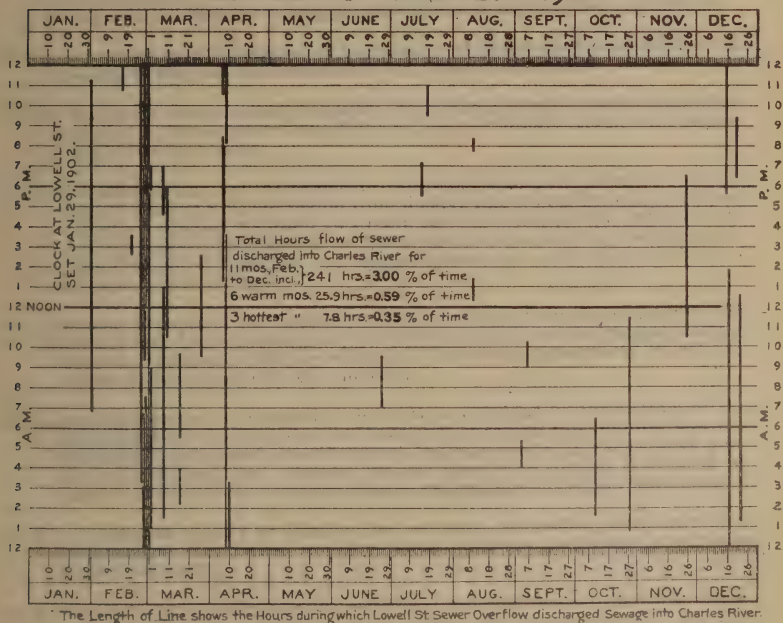 JAN. FEB. MAR. APR. MAY JUNE JULY AUG. SEPT. OCT. NOV. DEC.
10 20 30 9 19 1 11 21 10 20 10 20 30 9 19 29 9 19 29 8 18 28 7 17 27 7 17 27 6 16 26 6 16 26
12 12
11 11
10 10
9 9
8 8
7 7
6 6
5 5
4 4
3 3
2 2
1 1
12 NOON 12
11 11
10 10
9 9
8 8
7 7
6 6
5 5
4 4
3 3
2 2
1 1
12 12
P. M.
A. M.
P. M.
A. M.
CLOCK AT LOWELL ST.
SET JAN. 29, 1902.
Total Hours flow of sewer
discharged into Charles River for
11 mos., Feb. to Dec. incl., } 241 hrs.=3.00 % of time
6 warm mos. 25.9 hrs.=0.59 % of time
3 hottest " 7.8 hrs.=0.35 % of time
10 20 30 9 19 1 11 21 10 20 10 20 30 9 19 29 9 19 29 8 18 28 7 17 27 7 17 27 6 16 26 6 16 26
JAN. FEB. MAR. APR. MAY JUNE JULY AUG. SEPT. OCT. NOV. DEC.
The Length of Line shows the Hours during which Lowell St Sewer Overflow discharged Sewage into Charles River.